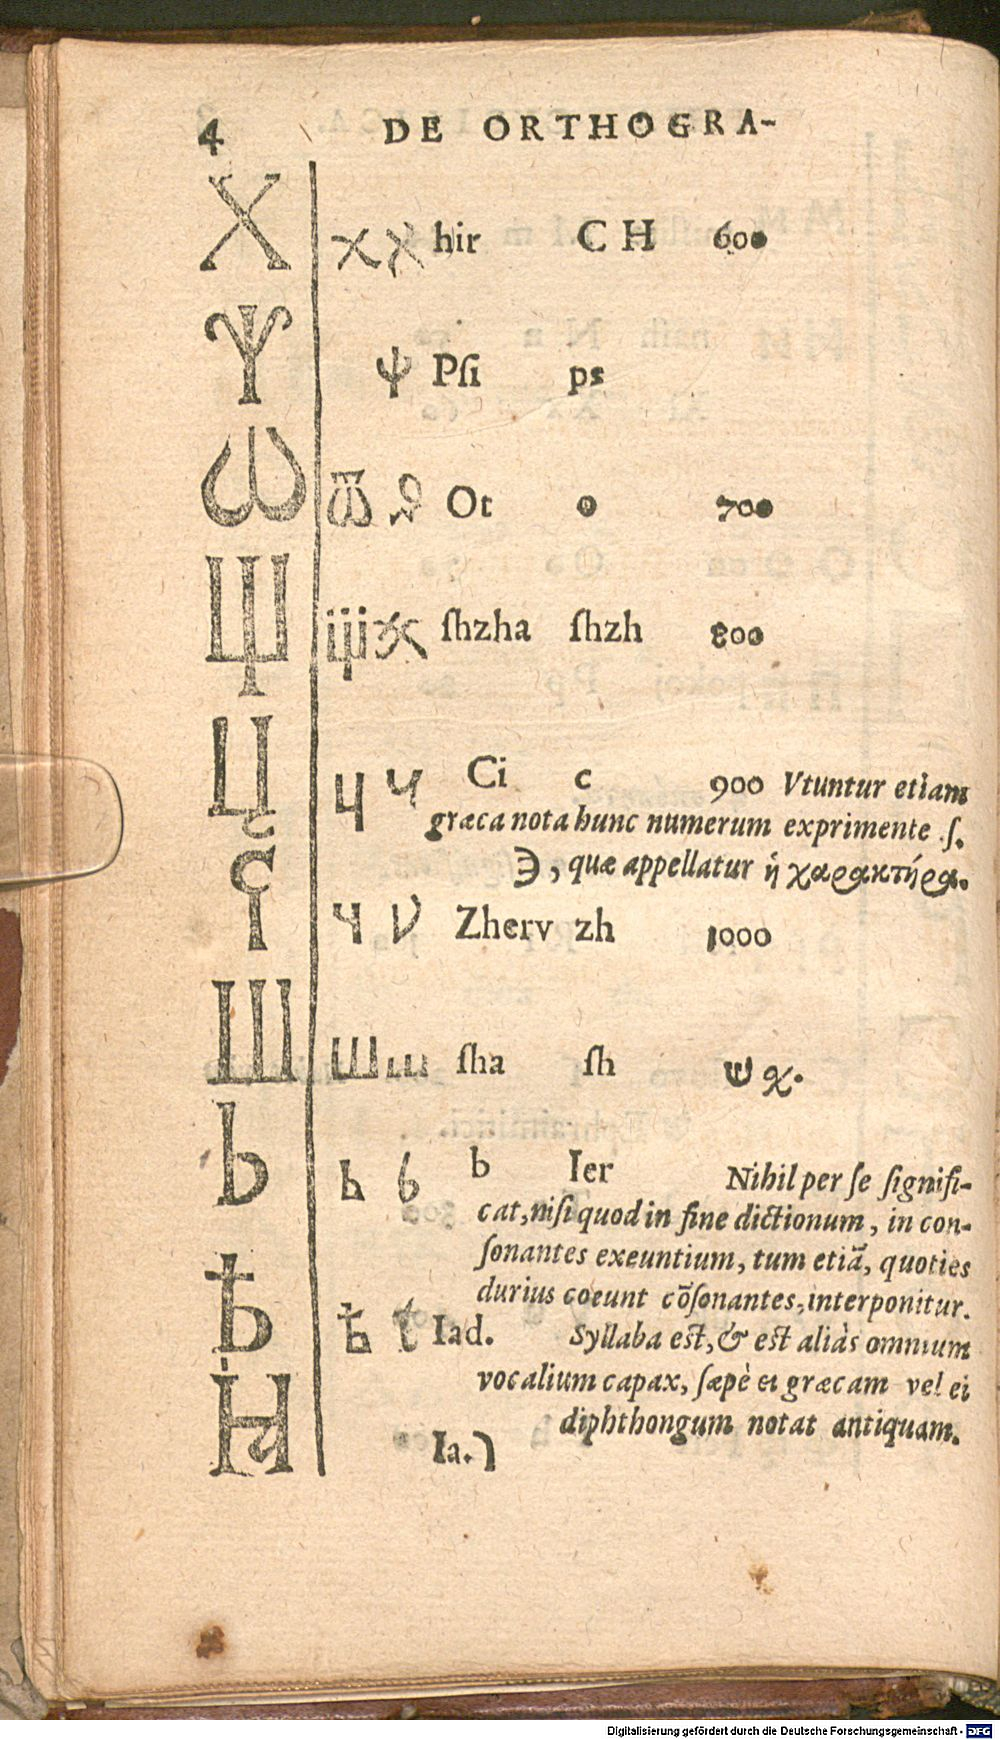 4 DE ORTHOGRA-
Х х х hir C H 600
Ѱ ѱ Pſi ps
Ѡ Ѿ Ot o 700
Щ щ ſhzha ſhzh 800
Ц ч ч Ci c 900 Vtuntur etiam
græca nota hunc numerum exprimente .ſ.
Э, quæ appellatur ἡ χαρακτήρα.
Ч ч Zherv zh 1000
Ш ш ш ſha ſh ѱ χ.
Ь ь ь b Ier Nihil per ſe ſignifi-
cat, niſi quod in fine dictionum, in con-
ſonantes exeuntium, tum etiã, quoties
durius coeunt cõſonantes, interponitur.
Ѣ ѣ ѣ Iad. Syllaba eſt, & eſt aliàs omnium
vocalium capax, ſæpè et græcam vel ei
diphthongum notat antiquam.
Ia.
Digitalisierung gefördert durch die Deutsche Forschungsgemeinschaft - DFG